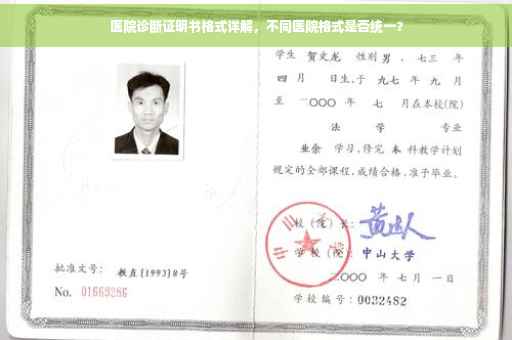 医院诊断证明书格式详解，不同医院格式是否统一？
学生 贺文龙 性别 男 ，七三 年
四 月 日生，于 九七 年 九 月
至 二〇〇〇 年 七 月在本校(院)
法 学 专业
业余 学习，修完 本 科教学计划
规定的全部课程，成绩合格，准予毕业。
校 (院) 长：
学 校 (院)： 中山大学
二〇〇〇 年 七 月 一 日
学校编号：0032482
批准文号： 教直(1993)8号
No. 01663286